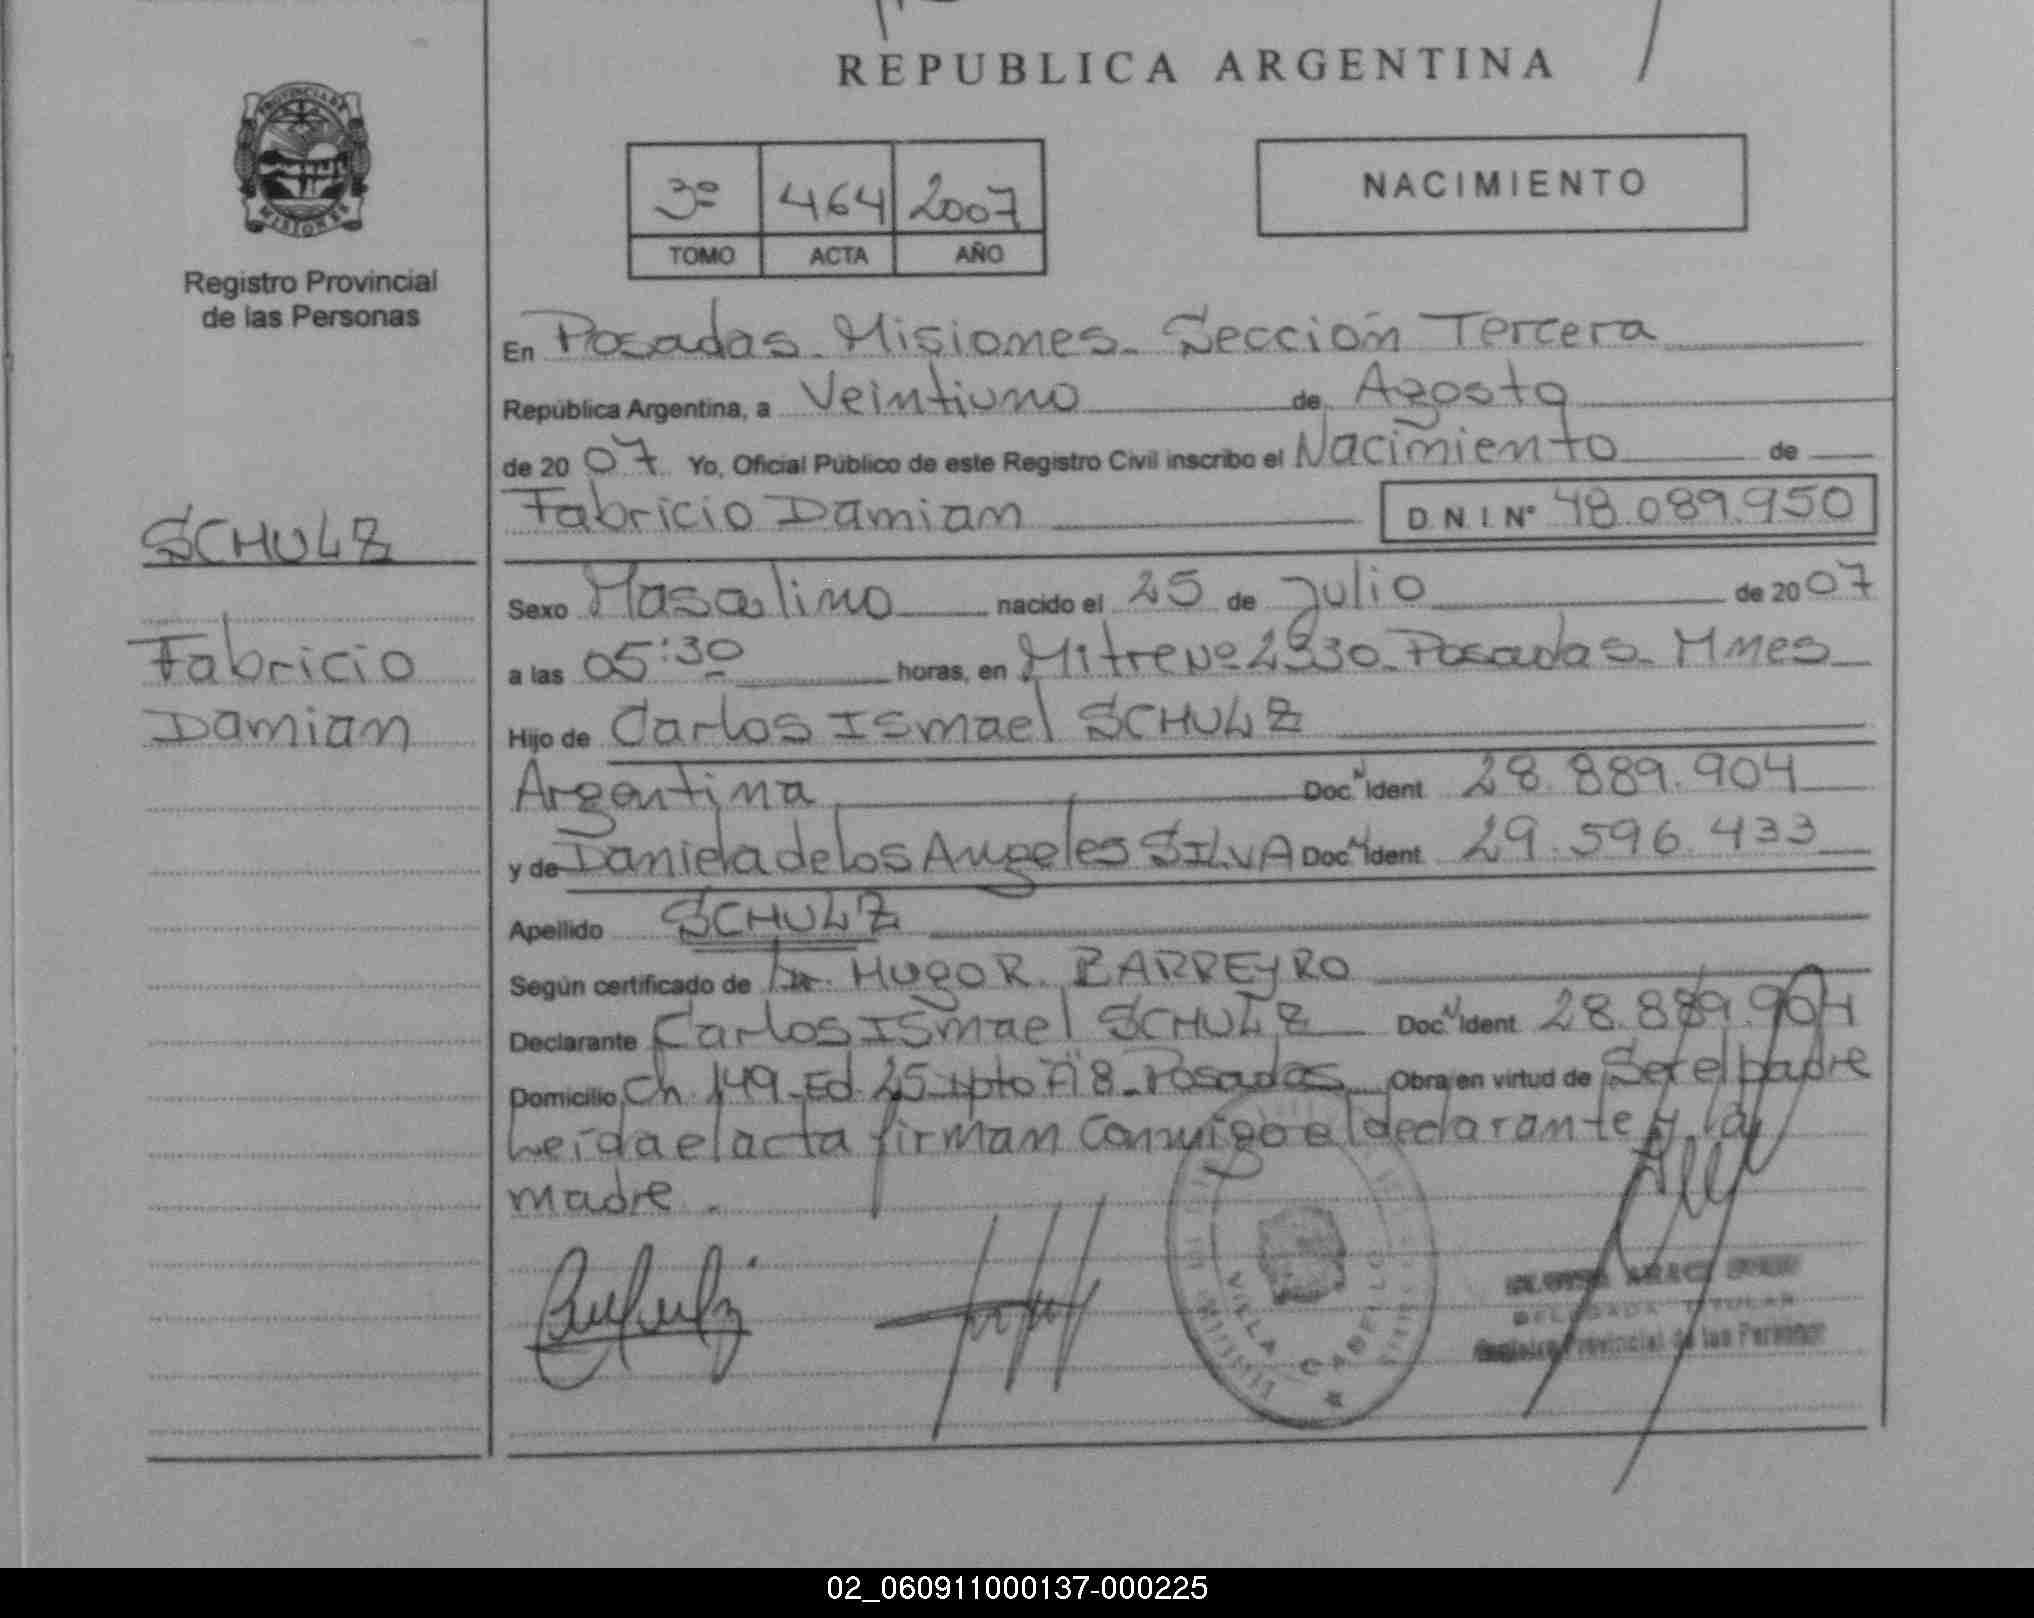 PROVINCIA DE
MISIONES
Registro Provincial
de las Personas
SCHULZ
Fabricio
Damian
REPUBLICA ARGENTINA
3º 464 2007
TOMO ACTA AÑO
NACIMIENTO
En Posadas - Misiones - Sección Tercera
República Argentina, a Veintiuno de Agosto
de 2007 Yo, Oficial Público de este Registro Civil inscribo el Nacimiento de
Fabricio Damian D N I Nº 48.089.950
Sexo Masculino nacido el 25 de Julio de 2007
a las 05:30 horas, en Mitre Nº 2330 - Posadas - Mnes
Hijo de Carlos Ismael SCHULZ
Argentina Doc Ident 28.889.904
y de Daniela de los Angeles SILVA Doc Ident 29.596.433
Apellido SCHULZ
Según certificado de Dr. Hugo R. BARREYRO
Declarante Carlos Ismael SCHULZ Doc Ident 28.889.904
Domicilio Ch. 149 - Ed. 25 - Dpto - Posadas Obra en virtud de Ser el padre
Leída el acta firman Conmigo el declarante y la
madre.
VILLA CABELLO
DELEGADA TITULAR
Registro Provincial de las Personas
02_060911000137-000225